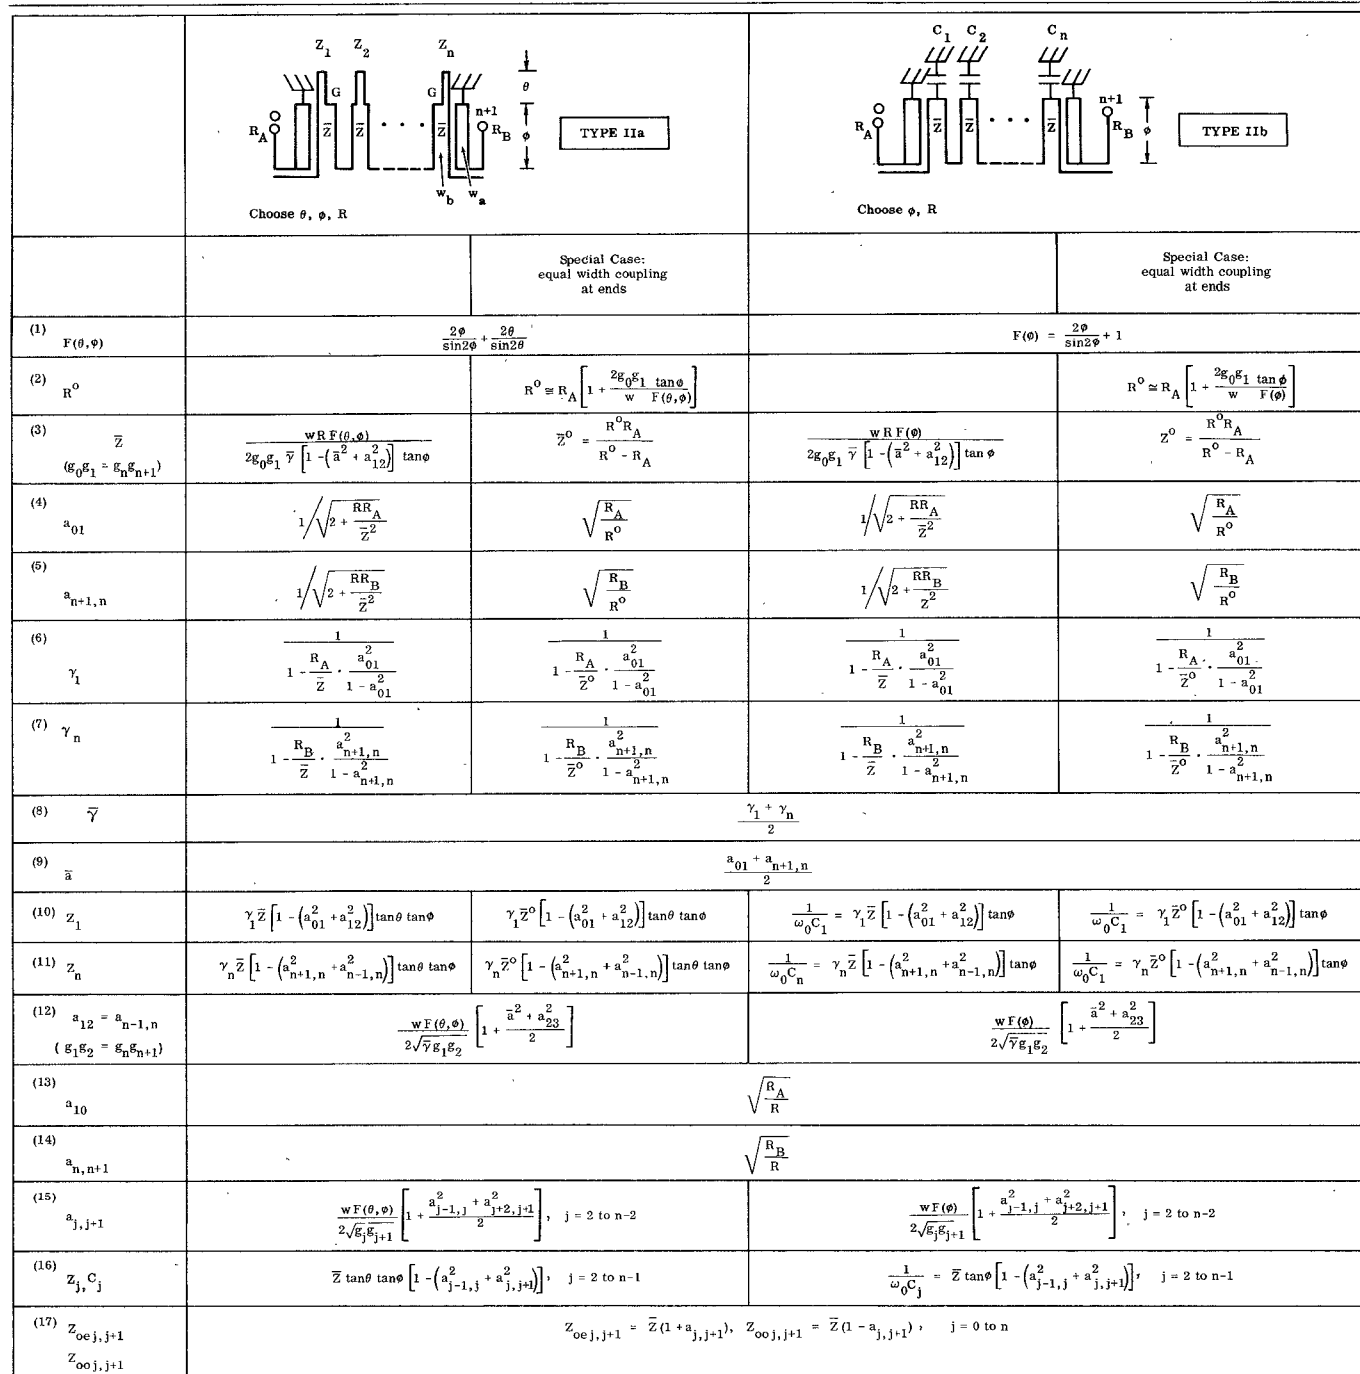 Z_1 Z_2 Z_n
G
θ
R_A Z̄ Z̄ · · · Z̄ n+1 R_B φ
TYPE IIa
w_b w_a
Choose θ, φ, R
C_1 C_2 C_n
R_A Z̄ Z̄ · · · Z̄ n+1 R_B φ
TYPE IIb
Choose φ, R
Special Case:
equal width coupling
at ends
Special Case:
equal width coupling
at ends
(1) F(θ,φ)
2φ/sin2φ + 2θ/sin2θ
F(φ) = 2φ/sin2φ + 1
(2) R^o
R^o ≅ R_A [1 + (2g_0g_1/w) (tanφ/F(θ,φ))]
R^o ≅ R_A [1 + (2g_0g_1/w) (tanφ/F(φ))]
(3) Z̄
(g_0g_1 = g_ng_{n+1})
wRF(θ,φ) / (2g_0g_1 γ̄ [1 - (ā^2 + a_{12}^2)] tanφ)
Z̄^o = R^oR_A / (R^o - R_A)
wRF(φ) / (2g_0g_1 γ̄ [1 - (ā^2 + a_{12}^2)] tanφ)
Z^o = R^oR_A / (R^o - R_A)
(4) a_{01}
1/√(2 + RR_A/Z̄^2)
√(R_A/R^o)
1/√(2 + RR_A/Z̄^2)
√(R_A/R^o)
(5) a_{n+1,n}
1/√(2 + RR_B/Z̄^2)
√(R_B/R^o)
1/√(2 + RR_B/Z^2)
√(R_B/R^o)
(6) γ_1
1 / (1 - (R_A/Z̄) · a_{01}^2/(1 - a_{01}^2))
1 / (1 - (R_A/Z̄^o) · a_{01}^2/(1 - a_{01}^2))
1 / (1 - (R_A/Z̄) · a_{01}^2/(1 - a_{01}^2))
1 / (1 - (R_A/Z̄^o) · a_{01}^2/(1 - a_{01}^2))
(7) γ_n
1 / (1 - (R_B/Z̄) · a_{n+1,n}^2/(1 - a_{n+1,n}^2))
1 / (1 - (R_B/Z̄^o) · a_{n+1,n}^2/(1 - a_{n+1,n}^2))
1 / (1 - (R_B/Z̄) · a_{n+1,n}^2/(1 - a_{n+1,n}^2))
1 / (1 - (R_B/Z̄^o) · a_{n+1,n}^2/(1 - a_{n+1,n}^2))
(8) γ̄
(γ_1 + γ_n)/2
(9) ā
(a_{01} + a_{n+1,n})/2
(10) Z_1
γ_1 Z̄ [1 - (a_{01}^2 + a_{12}^2)] tanθ tanφ
γ_1 Z̄^o [1 - (a_{01}^2 + a_{12}^2)] tanθ tanφ
1/(ω_0C_1) = γ_1 Z̄ [1 - (a_{01}^2 + a_{12}^2)] tanφ
1/(ω_0C_1) = γ_1 Z̄^o [1 - (a_{01}^2 + a_{12}^2)] tanφ
(11) Z_n
γ_n Z̄ [1 - (a_{n+1,n}^2 + a_{n-1,n}^2)] tanθ tanφ
γ_n Z̄^o [1 - (a_{n+1,n}^2 + a_{n-1,n}^2)] tanθ tanφ
1/(ω_0C_n) = γ_n Z̄ [1 - (a_{n+1,n}^2 + a_{n-1,n}^2)] tanφ
1/(ω_0C_1) = γ_n Z̄^o [1 - (a_{n+1,n}^2 + a_{n-1,n}^2)] tanφ
(12) a_{12} = a_{n-1,n}
(g_1g_2 = g_ng_{n+1})
wF(θ,φ)/(2√(γ̄g_1g_2)) [1 + (ā^2 + a_{23}^2)/2]
wF(φ)/(2√(γ̄g_1g_2)) [1 + (ā^2 + a_{23}^2)/2]
(13) a_{10}
√(R_A/R)
(14) a_{n,n+1}
√(R_B/R)
(15) a_{j,j+1}
wF(θ,φ)/(2√(g_jg_{j+1})) [1 + (a_{j-1,j}^2 + a_{j+2,j+1}^2)/2], j = 2 to n-2
wF(φ)/(2√(g_jg_{j+1})) [1 + (a_{j-1,j}^2 + a_{j+2,j+1}^2)/2], j = 2 to n-2
(16) Z_j, C_j
Z̄ tanθ tanφ [1 - (a_{j-1,j}^2 + a_{j,j+1}^2)], j = 2 to n-1
1/(ω_0C_j) = Z̄ tanφ [1 - (a_{j-1,j}^2 + a_{j,j+1}^2)], j = 2 to n-1
(17) Z_{oe j,j+1}
Z_{oo j,j+1}
Z_{oe j,j+1} = Z̄(1 + a_{j,j+1}), Z_{oo j,j+1} = Z̄(1 - a_{j,j+1}), j = 0 to n